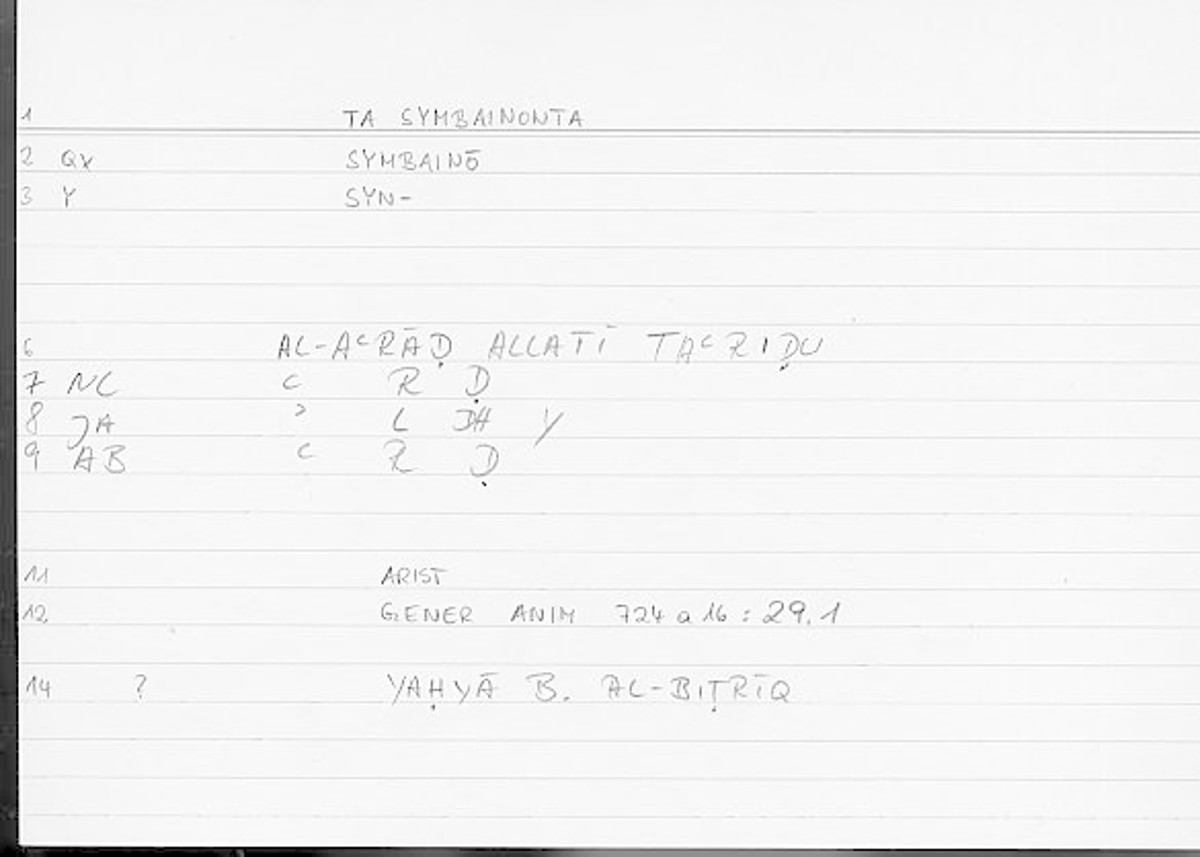 1 TA SYMBAINONTA
2 QX SYMBAINŌ
3 Y SYN-
6 AL-AʿRĀḌ ALLATĪ TAʿRIḌU
7 NC ʿ R Ḍ
8 JA ʾ L DH Y
9 AB ʿ R Ḍ
11 ARIST
12 GENER ANIM 724 a 16 : 29.1
14 ? YAḤYĀ B. AL-BIṬRĪQ